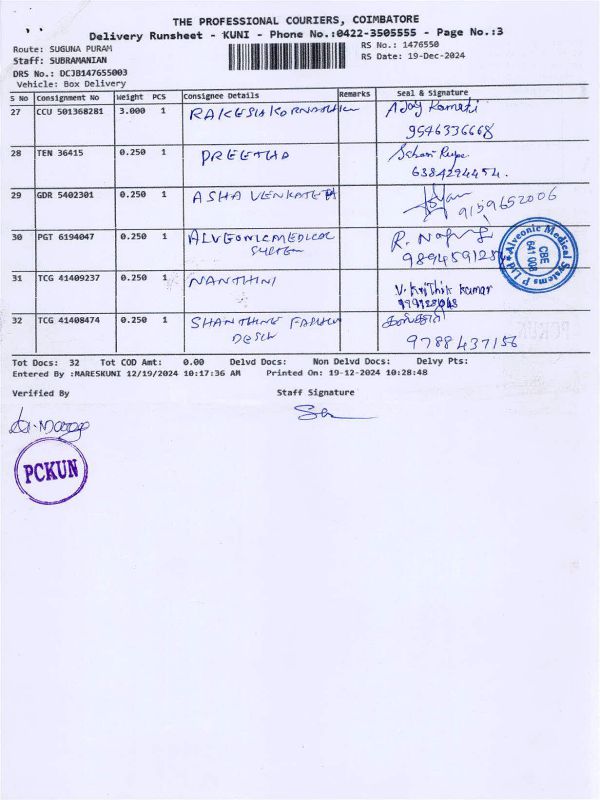 THE PROFESSIONAL COURIERS, COIMBATORE
Delivery Runsheet - KUNI - Phone No.:0422-3505555 - Page No.:3
Route: SUGUNA PURAM
RS No.: 1476550
Staff: SUBRAMANIAN
RS Date: 19-Dec-2024
DRS No.: DCJB147655003
Vehicle: Box Delivery
S No Consignment No Weight PCS Consignee Details Remarks Seal & Signature
27 CCU 501368281 3.000 1 RAKESH Ajay Kamati
9546336668
28 TEN 36415 0.250 1 PREETHA
6384294454.
29 GDR 5402301 0.250 1 ASHA VENKATE
9159652006
30 PGT 6194047 0.250 1 ALVEONIC MEDICAL R.
989459128
Alveonic Medical Systems P Ltd
CBE
641 008
31 TCG 41409237 0.250 1 NANTHINI V. Krithik Kumar
32 TCG 41408474 0.250 1 SHANTHINE
DESIGN 9788437156
PCKUN
Tot Docs: 32 Tot COD Amt: 0.00 Delvd Docs: Non Delvd Docs: Delvy Pts:
Entered By :MARESKUNI 12/19/2024 10:17:36 AM Printed On: 19-12-2024 10:28:48
Verified By Staff Signature
PCKUN